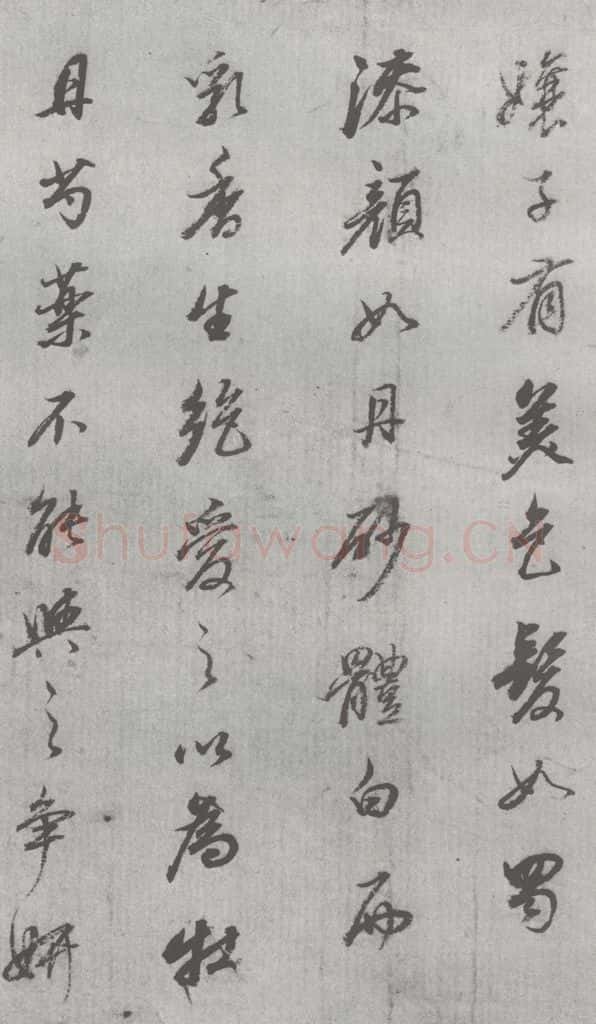 孃子有美色髮如蜀
漆顏如丹砂體白而
乳香生絕愛之以為牡
丹芍藥不能與之爭妍
shufawang.CN